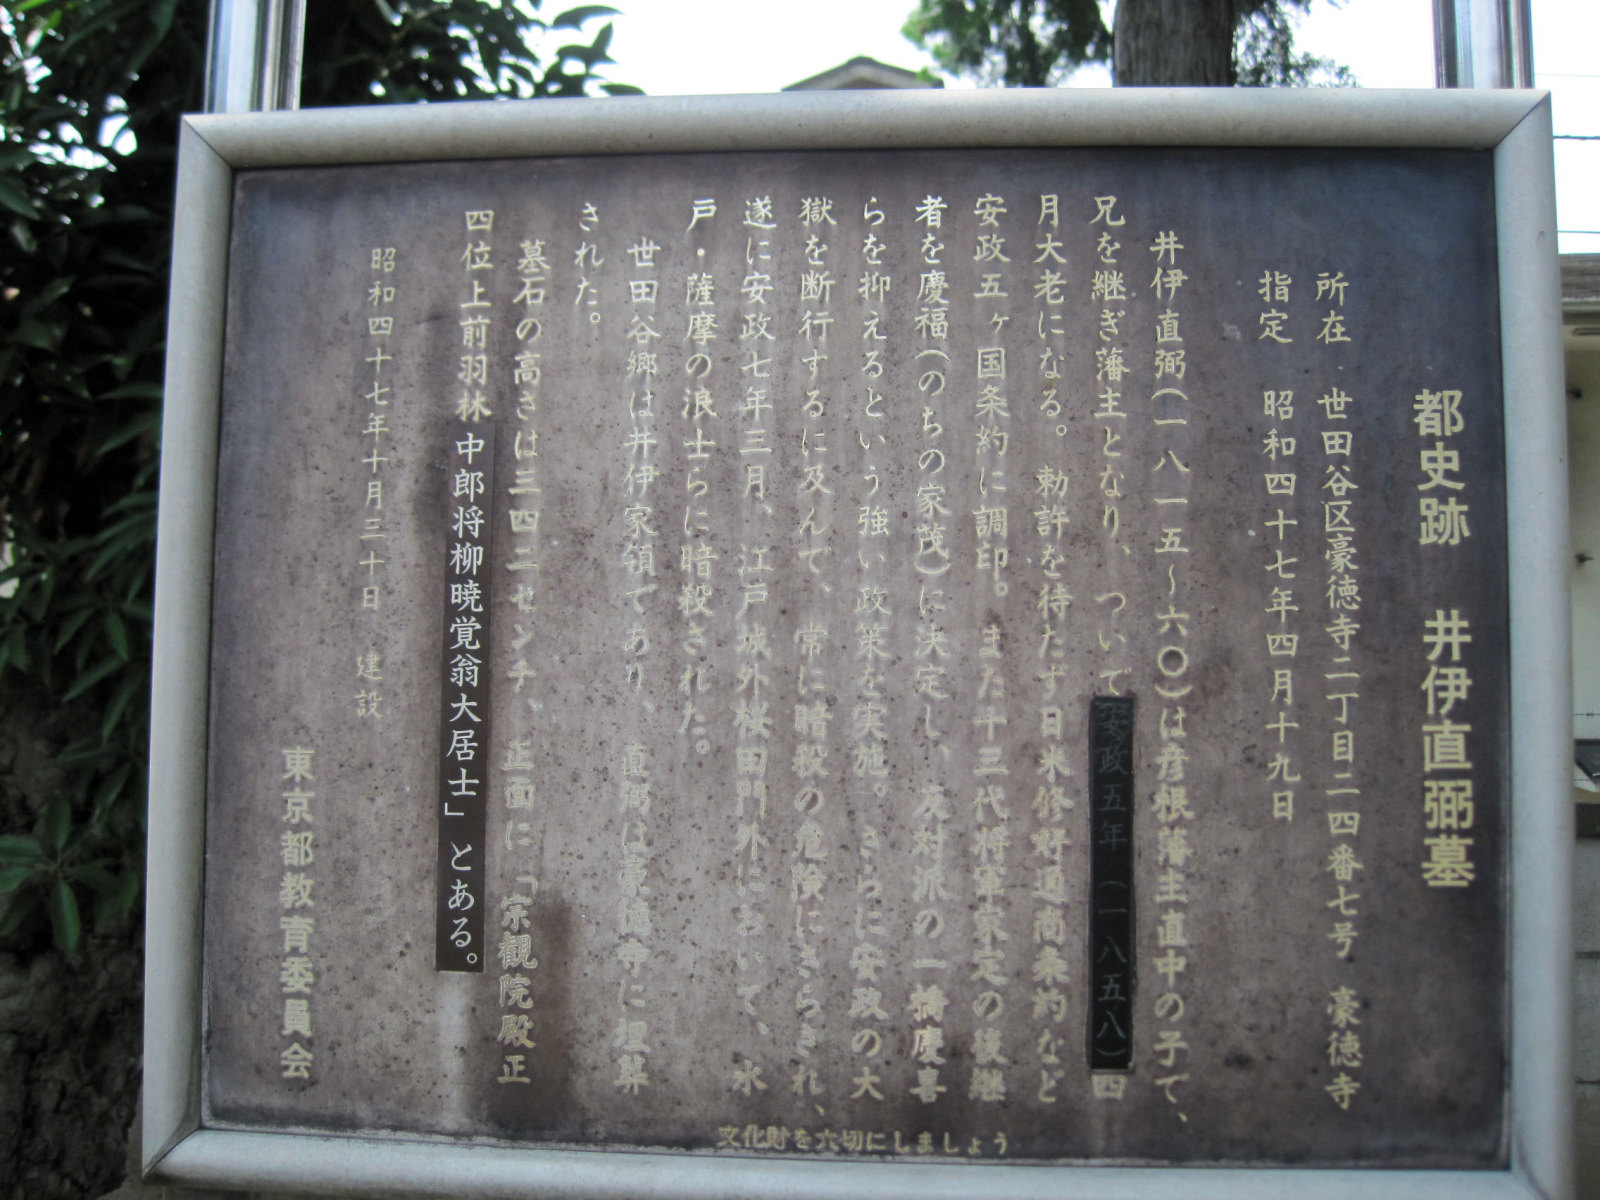 都史跡　井伊直弼墓
所在　世田谷区豪徳寺二丁目二四番七号　豪徳寺
指定　昭和四十七年四月十九日
井伊直弼(一八一五～六〇)は彦根藩主直中の子で、
兄を継ぎ藩主となり、ついで安政五年(一八五八)四
月大老になる。勅許を待たず日米修好通商条約など
安政五ヶ国条約に調印。また十三代将軍家定の後継
者を慶福(のちの家茂)に決定し、反対派の一橋慶喜
らを抑えるという強い政策を実施。さらに安政の大
獄を断行するに及んで、常に暗殺の危険にさらされ、
遂に安政七年三月、江戸城外桜田門外において、水
戸・薩摩の浪士らに暗殺された。
世田谷郷は井伊家領であり、直弼は豪徳寺に埋葬
された。
墓石の高さは三四二センチ、正面に「宗観院殿正
四位上前羽林中郎将柳暁覚翁大居士」とある。
昭和四十七年十月三十日　建設
東京都教育委員会
文化財を大切にしましょう